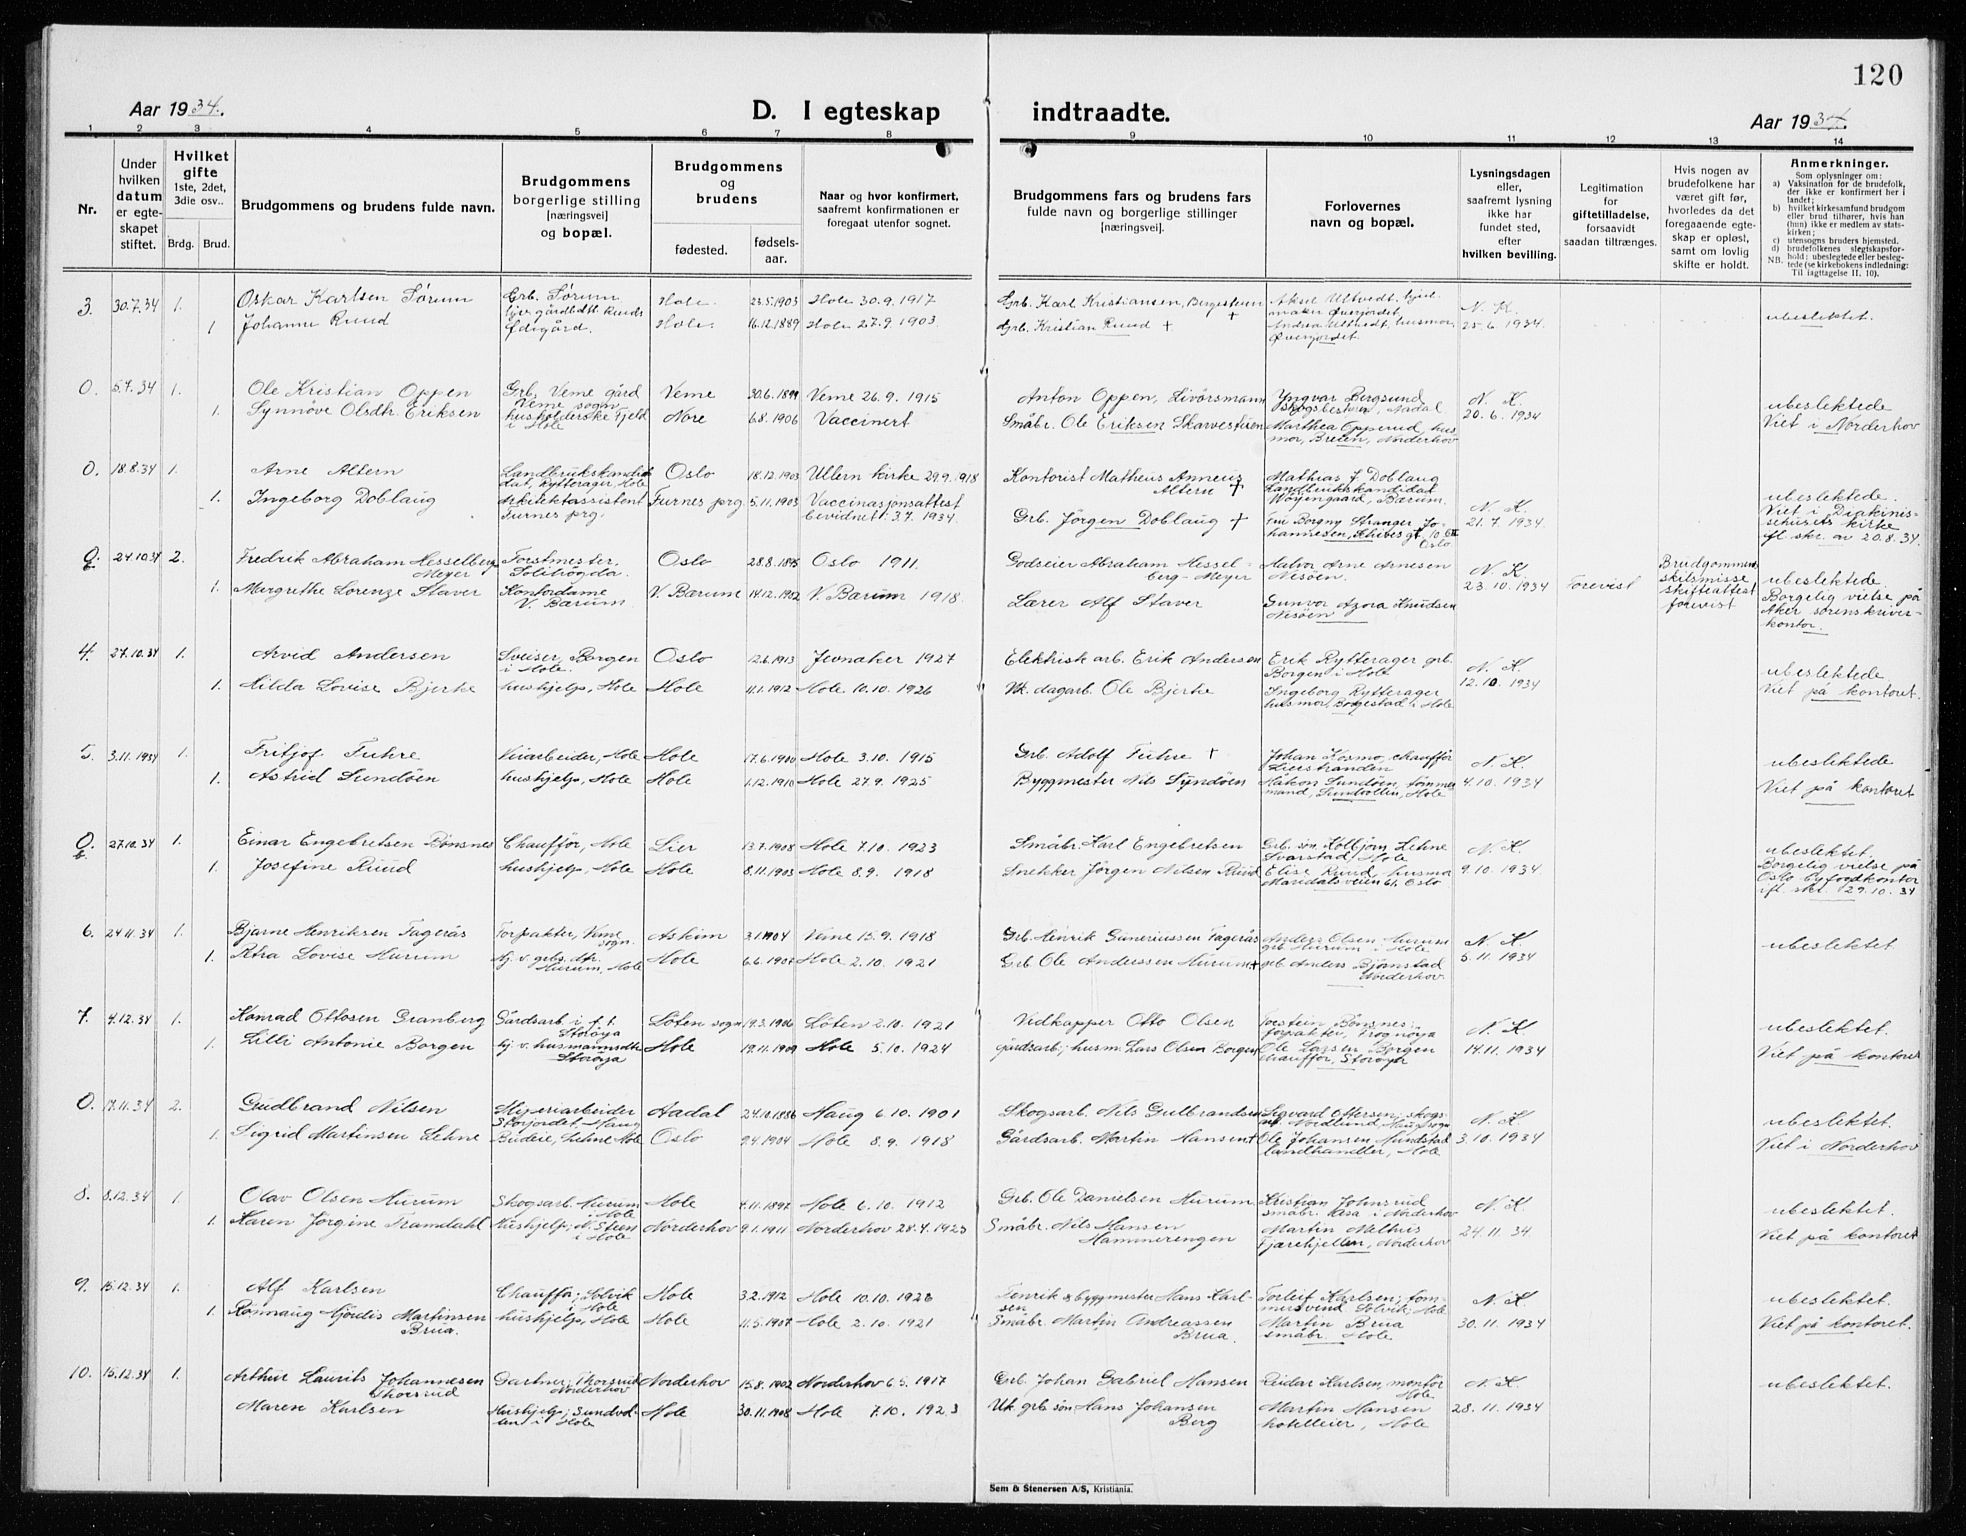 120
Aar 1934.
D. I egteskap indtraadte.
Aar 1934.
1 2 3 4 5 6 7 8 9 10 11 12 13 14
Nr.
Under hvilken datum er egteskapet stiftet.
Hvilket gifte 1ste, 2det, 3die osv..
Brdg. Brud.
Brudgommens og brudens fulde navn.
Brudgommens borgerlige stilling [næringsvei] og bopæl.
Brudgommens og brudens
fødested. fødselsaar.
Naar og hvor konfirmert, saafremt konfirmationen er foregaat utenfor sognet.
Brudgommens fars og brudens fars fulde navn og borgerlige stillinger [næringsvei].
Forlovernes navn og bopæl.
Lysningsdagen eller, saafremt lysning ikke har fundet sted, efter hvilken bevilling.
Legitimation for giftetilladelse, forsaavidt saadan tiltrænges.
Hvis nogen av brudefolkene har været gift før, hvorledes da det foregaaende egteskap er opløst, samt om lovlig skifte er holdt.
Anmerkninger.
Som oplysninger om:
a) Vaksination for de brudefolk, der ikke er konfirmert her i landet;
b) hvilket kirkesamfund brudgom eller brud tilhører, hvis han (hun) ikke er medlem av statskirken;
c) utensogns bruders hjemsted.
d) brudefolkenes slegtskapsforhold: ubeslegtede eller beslegtede (se kirkebokens indledning:
NB. Til iagttagelse II. 10).
3 30.7.34 1. Oskar Karlsen Sørum Grb. Sørum Hole 23.5.1903 Hole 30.9.1917 Grb. Karl Kristiansen, + N. K. ubeslektet.
1 Johanne Ruud Ødegård. Hole 16.12.1889 Hole 27.9.1903 Grb. Kristian Ruud + 25.6.1934.
0. 5.7.34 1. Ole Kristian Oppen Grb. Veme gård Veme sogn Veme 30.6.1899 Veme 26.9.1915 Anton Oppen, Livörsmann Yngvar Bergsund skogsbestyrer, Aadal N. K. ubeslektede
1. Synnöve Olsdtr. Eriksen husholderske Fjeld i Hole Nore 6.8.1906 Vaccinert Småbr. Ole Eriksen Marthea Opperud, husmor, Breien, Norderhov 20.6.1934 Viet i Norderhov
0. 18.8.34 1. Arne Altern Landbrukskandidat, Rytterager, Hole Oslo 18.12.1903 Ullern kirke 29.9.1918 Kontorist Matheus Anneus Altern + Mathias J Doblaug Landbrukskandidat Wøyengaard, Bærum. N. K. ubeslektede.
1. Ingeborg Doblaug Arkitektassistent Furnes prg. Furnes prg. 5.11.1903 Vaccinasjonsattest bevidnet 3.7.1934. Grb. Jörgen Doblaug + Borgny Stranger Johannesen, Oslo 21.7.1934 Viet i Diakonissehusets kirke ifl skr. av 20.8.34.
0. b. 24.10.34 2. Fredrik Abraham Hesselberg Meyer Forstmester, Sollihögda. Oslo 28.8.1895 Oslo 1911. Godseier Abraham Hesselberg-Meyer Halvor Arne Arnesen Nesöen. N. K. 23.10.1934 Forevist Brudgommens skilsmisse skifteattest forevist ubeslektede.
1. Margrethe Lorenze Staver Kontordame V. Bærum V. Bærum 14.12.1902 V. Bærum 1918. Lærer Alf Staver Gunvor Azora Knudsen Nesöen Borgelig vielse på Aker sorenskriverkontor.
4. 27.10.34 1. Arvid Andersen Sveiser, Borgen i Hole Oslo 12.6.1913 Jevnaker 1927 Elektrisk arb. Erik Andersen Erik Rytterager grb. Borgen i Hole N. K. ubeslektede
1. Hilda Lovise Bjerke hushjelp, Hole Hole 11.1.1912 Hole 10.10.1926 dagarb. Ole Bjerke Ingeborg Rytterager husmor, Borgestad i Hole 12.10.1934 Viet på kontoret.
5. 3.11.1934 1. Fritjof Fuhre Veiarbeider, Hole Hole 17.6.1900 Hole 3.10.1915 Grb. Adolf Fuhre + Johan Kosmo, chauffør Lierstranden N. K. ubeslektede
1. Astrid Sundöen hushjelp, Hole Hole 1.12.1910 Hole 27.9.1925 Byggmester Nils Syndöen Håkon Sundöen, tömmermand, Sundvollen, Hole 4.10.1934 Viet på kontoret
0. b. 27.10.34 1. Einar Engebretsen Bönsnes Chauffør, Hole Lier 13.7.1908 Hole 7.10.1923 Småbr. Karl Engebretsen Grb. sön Kolbjörn Lehne Svarstad, Hole N. K. ubeslektet.
1. Josefine Ruud hushjelp, Hole Hole 8.11.1903 Hole 8.9.1918 Snekker Jörgen Nilsen Ruud Elise Ruud, husmor Maridalsveien 61. Oslo 9.10.1934. Borgelig vielse på Oslo byfogdkontor ifl. skr. 29.10.34
6. 24.11.34 1. Bjarne Henriksen Fagerås Forpakter, Veme sogn. Askim 3.1.1904 Veme 15.9.1918 Grb. Henrik Guneriussen Fagerås Anders Olsen Hurum grb. Hurum i Hole N. K. ubeslektet
1. Lovise Hurum Hj. v. grbr. dtr. Hurum, Hole Hole 6.6.1907 Hole 2.10.1921 Grb Ole Anderssen Hurum + grb. Anders Bjørnstad Norderhov. 5.11.1934
7. 4.12.34 1. Konrad Ottosen Granberg Gårdsarb. i f. t. Storöya Löten sogn 19.3.1906 Löten 2.10.1921 Vedkapper Otto Olsen Torstein Bönsnes; forpakter, Frognöya N. K. ubeslektet.
1. Lilli Antonie Borgen hj. v. husmannsdtr Storöya Hole 19.11.1909 Hole 5.10.1924 gårdsarb; husm. Lars Olsen Borgen Ole Larsen Borgen chauffør, Storöya 14.11.1934 Viet på kontoret
0. 17.11.34 2. Gudbrand Nilsen Meieriarbeider Storjordet, Haug Aadal 24.10.1886 Haug 6.10.1901 Skogsarb. Nils Gulbrandsen Sigvard Ottersen; skogsarb. Nordlund, Haug sogn N. K. ubeslektet.
1. Sigrid Martinsen Lehne Budeie, Lehne Hole Oslo 9.4.1904 Hole 8.9.1918 Gårdsarb. Martin Hansen + Ole Johansen Sundstad landhandler, Hole 3.10.1934 Viet i Norderhov
8. 8.12.34 1. Olav Olsen Hurum Skogsarb. Hurum i Hole Hole 4.11.1897 Hole 6.10.1912 Grb. Ole Danielsen Hurum Kristian Johnsrud småbr. Aasa i Norderhov N. K. ubeslektet.
1. Karen Jörgine Framdahl Hushjelp; N. Steen i Hole Norderhov 9.1.1911 Norderhov 28.4.1923 Småbr. Nils Hansen Hammerengen Martin Melhus Fjærehjellen, Norderhov 24.11.34. Viet på kontoret
9. 15.12.34 1. Alf Karlsen Chauffør; Solvik i Hole Hole 3.2.1912 Hole 10.10.1926 byggmester Hans Karlsen Torleif Karlsen; tömmersvend Solvik; Hole N. K. ubeslektet.
1. Rönnaug Hjördis Martinsen Brua. hushjelp, Hole Hole 11.5.1907 Hole 2.10.1921 Småbr. Martin Andreassen Brua. Martin Brua småbr. Hole 30.11.1934 Viet på kontoret.
10. 15.12.34 1. Arthur Laurits Johannesen Thorsrud Gartner; Thorsrud Norderhov Norderhov 15.8.1902 Norderhov 6.5.1917 Grb. Johan Gabriel Hansen Reidar Karlsen, montör Hole N. K. ubeslektet.
Maren Karlsen Hushjelp; Sundvollen i Hole Hole 30.11.1908 Hole 7.10.1923 grb. sön Hans Johansen Berg Martin Hansen hotelleier, Hole 28.11.1934
Sem & Stenersen A/S, Kristiania.